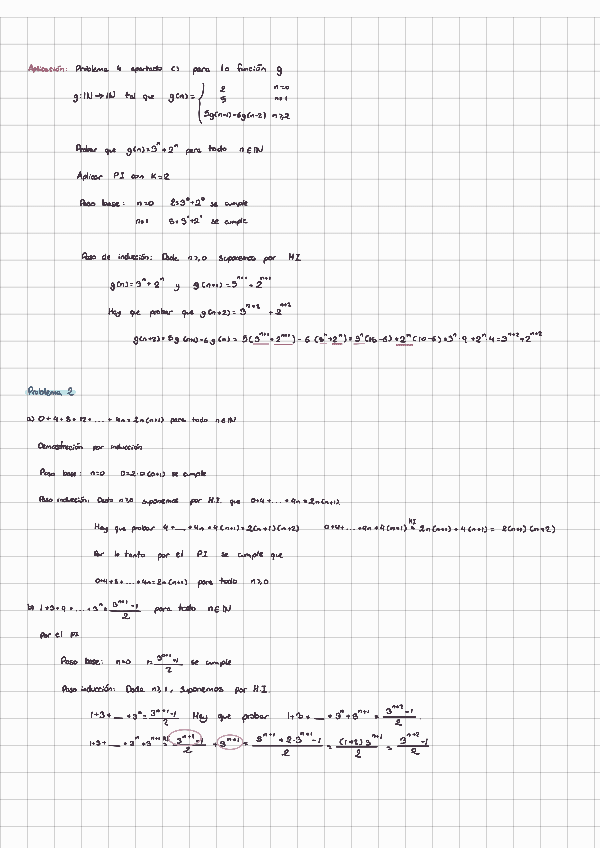 Aplicación: Problema 4 apartado c) para la función g
g: ℕ → ℕ tal que g(n) = { 2 n=0
5 n=1
5g(n-1)-6g(n-2) n≥2
Probar que g(n)=3^n+2^n para todo n∈ℕ
Aplicar PI con K=2
Paso base: n=0 2=3^0+2^0 se cumple
n=1 5=3^1+2^1 se cumple
Paso de inducción: Dado n≥0 suponemos por HI
g(n)=3^n+2^n y g(n+1)=3^{n+1}+2^{n+1}
Hay que probar que g(n+2)=3^{n+2}+2^{n+2}
g(n+2)=5g(n+1)-6g(n)=5(3^{n+1}+2^{n+1})-6(3^n+2^n)=3^n(15-6)+2^n(10-6)=3^n·9+2^n·4=3^{n+2}+2^{n+2}
Problema 2
a) 0+4+8+12+...+4n=2n(n+1) para todo n∈ℕ
Demostración por inducción
Paso base: n=0 0=2·0(0+1) se cumple
Paso inducción: Dado n≥0 suponemos por H.I. que 0+4+...+4n=2n(n+1)
Hay que probar 4+...+4n+4(n+1)=2(n+1)(n+2) 0+4+...+4n+4(n+1) =^{HI} 2n(n+1)+4(n+1)= 2(n+1)(n+2)
Por lo tanto por el PI se cumple que
0+4+8+...+4n=2n(n+1) para todo n≥0
b) 1+3+9+...+3^n=(3^{n+1}-1)/2 para todo n∈ℕ
Por el PI
Paso base: n=0 1=(3^{0+1}-1)/2 se cumple
Paso inducción: Dado n≥1, suponemos por H.I.
1+3+...+3^n=(3^{n+1}-1)/2 Hay que probar 1+3+...+3^n+3^{n+1}=(3^{n+2}-1)/2.
1+3+...+3^n+3^{n+1} =^{HI} (3^{n+1}-1)/2+3^{n+1}=(3^{n+1}+2·3^{n+1}-1)/2=((1+2)3^{n+1})/2=(3^{n+2}-1)/2